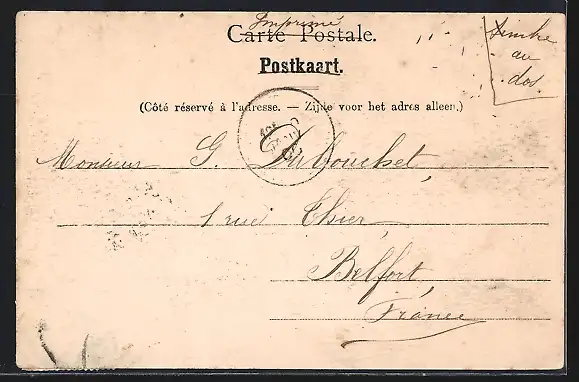 Imprimé
Carte Postale.
Timbre
au
dos.
Postkaart.
(Côté réservé à l'adresse. — Zijde voor het adres alleen.)
Monsieur G. Dubouchet
1 rue Thier,
Belfort
France